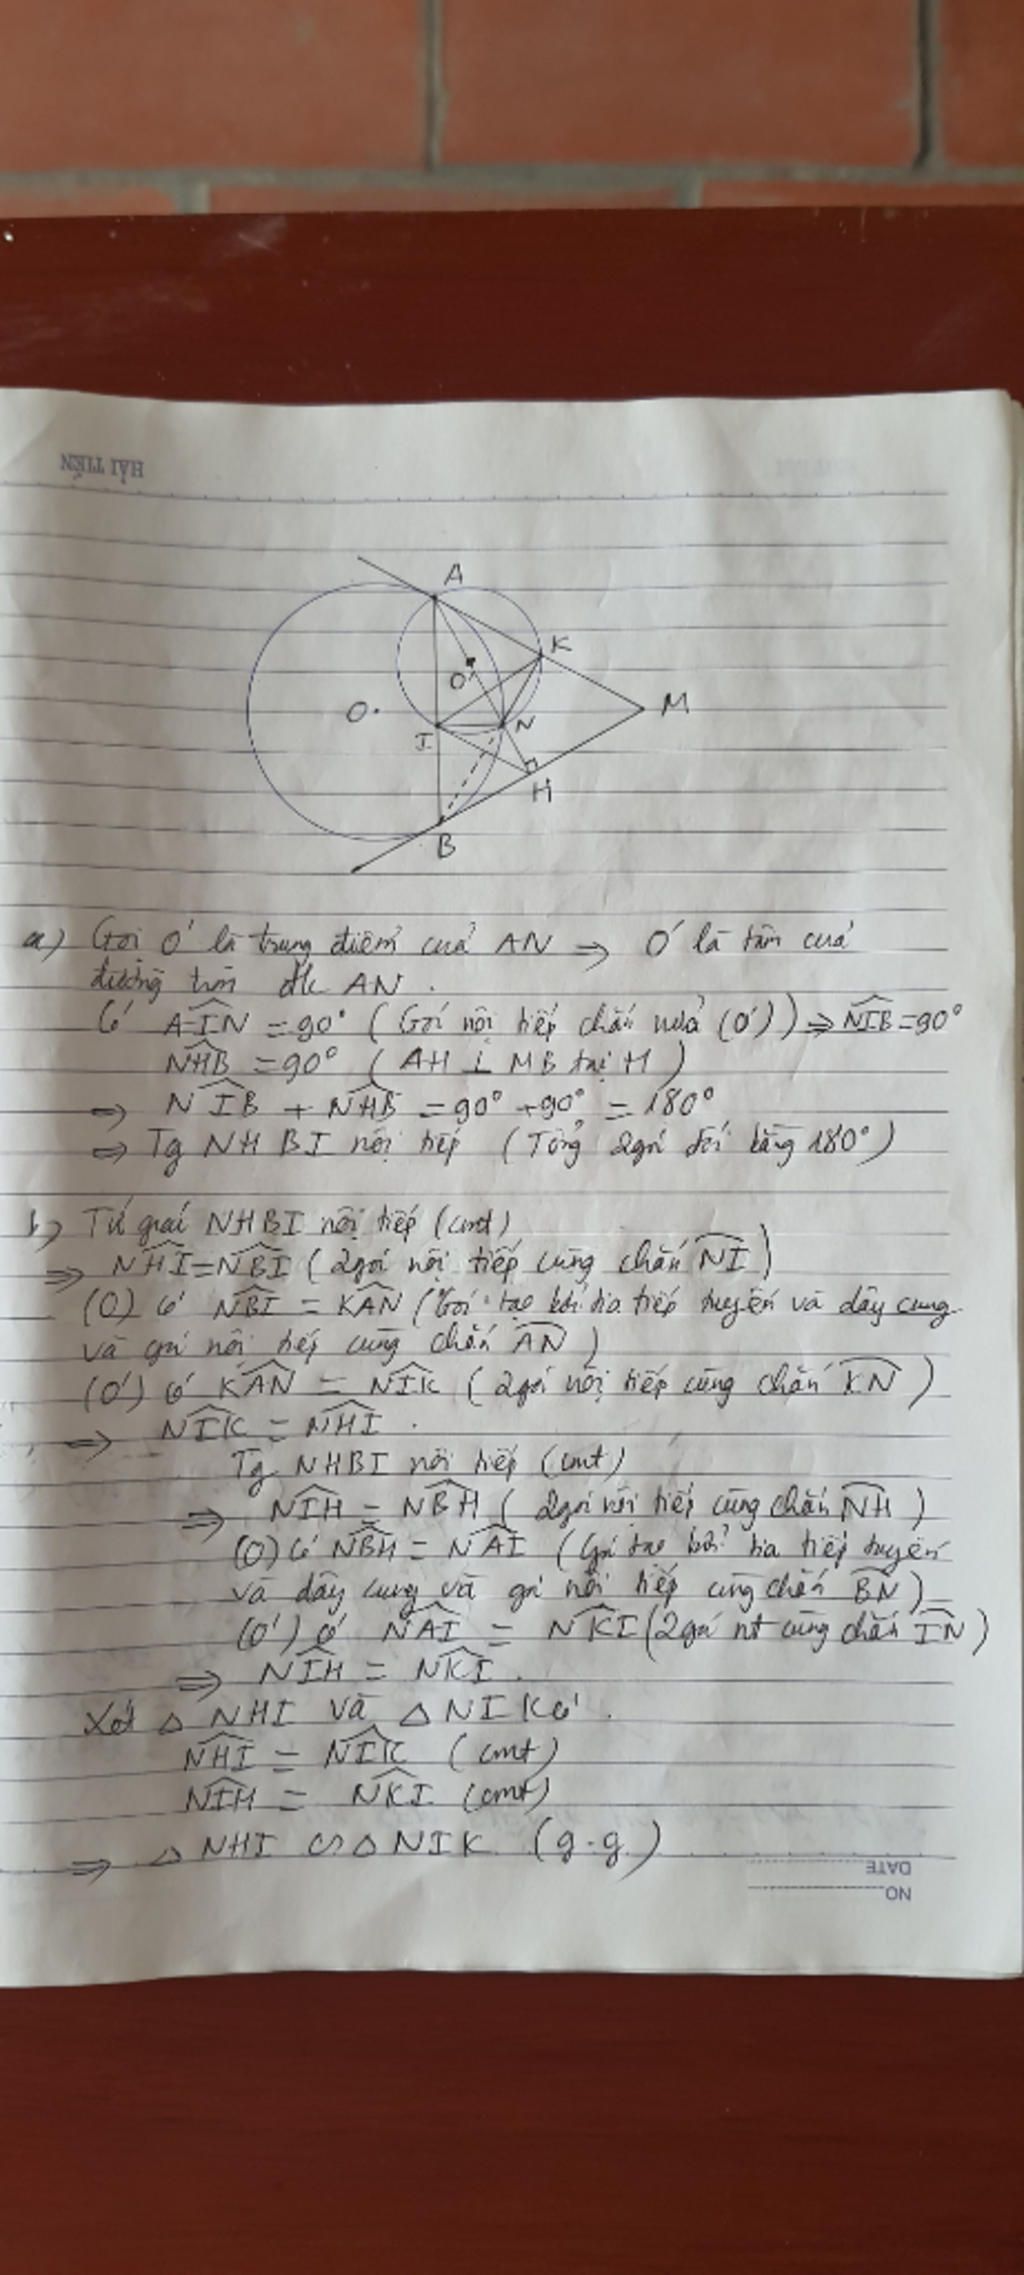 HẢI TIẾN
A
K
O'
O.
M
I
N
H
B
a) Gọi O' là trung điểm của AN => O' là tâm của
đường tròn đk AN.
Có AIN = 90° (Góc nội tiếp chắn nửa (O')) => NIB = 90°
NHB = 90° (AH ⊥ MB tại H)
=> NIB + NHB = 90° + 90° = 180°
=> Tg NHBI nội tiếp (Tổng 2 góc đối bằng 180°)
b) Tứ giác NHBI nội tiếp (cmt)
=> NHI = NBI (2 góc nội tiếp cùng chắn NI)
(O) có NBI = KAN (Góc tạo bởi tia tiếp tuyến và dây cung
và góc nội tiếp cùng chắn AN)
(O') có KAN = NIK (2 góc nội tiếp cùng chắn KN)
=> NIK = NHI.
Tg NHBI nội tiếp (cmt)
=> NIH = NBH (2 góc nội tiếp cùng chắn NH)
(O) có NBH = NAI (Góc tạo bởi tia tiếp tuyến
và dây cung và góc nội tiếp cùng chắn BN)
(O') có NAI = NKI (2 góc nt cùng chắn IN)
=> NIH = NKI.
Xét △ NHI và △ NIK có.
NHI = NIK (cmt)
NIH = NKI (cmt)
=> △ NHI ∽ △ NIK (g.g)
DATE
NO